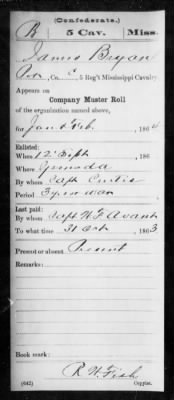 (Confederate.)
B 5 Cav. Miss.
James Bryan
Pvt, Co. C, 5 Reg't Mississippi Cavalry.
Appears on
Company Muster Roll
of the organization named above,
for Jan & Feb, 1864
Enlisted:
When 12 Sept, 186
Where Grenada
By whom Capt Curtis
Period 3 yrs or war
Last paid:
By whom Capt N F Avant
To what time 31 Oct, 1863
Present or absent Present
Remarks:
Book mark:
R. W. Fish
(642) Copyist.